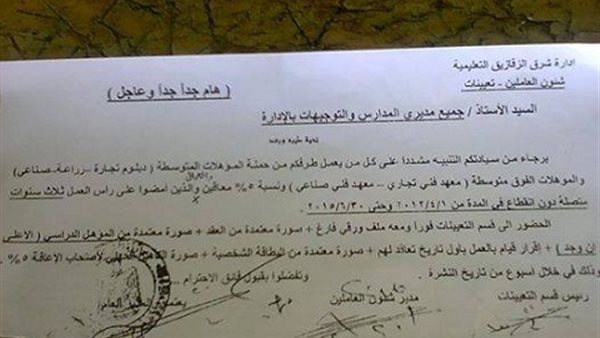 ادارة شرق الزقازيق التعليمية
شئون العاملين - تعيينات
( هام جداً جداً وعاجل )
السيد الأستاذ / جميع مديري المدارس والتوجيهات بالإدارة
تحية طيبه وبعد
برجاء من سيادتكم التنبيه مشددا على كل من يعمل طرفكم من حملة المؤهلات المتوسطة ( دبلوم تجارة -زراعة-صناعى )
والمؤهلات الفوق متوسطة ( معهد فني تجاري - معهد فني صناعي ) ونسبة ٥% معاقين والذين أمضوا على رأس العمل ثلاث سنوات
متصلة دون انقطاع في المدة من ٢٠١٢/٤/١ وحتى ٢٠١٥/٦/٣٠
الحضور الى قسم التعيينات فورا ومعه ملف ورقي فارغ + صورة معتمدة من العقد + صورة معتمدة من المؤهل الدراسي ( الاعلى
إن وجد ) + إقرار قيام بالعمل بأول تاريخ تعاقد لهم + صورة معتمدة من البطاقة الشخصية + صورة لأصحاب الإعاقة ٥%
وذلك في خلال اسبوع من تاريخ النشرة
وتفضلوا بقبول فائق الاحترام
رئيس قسم التعيينات
مدير شئون العاملين
يعتمد المدير العام